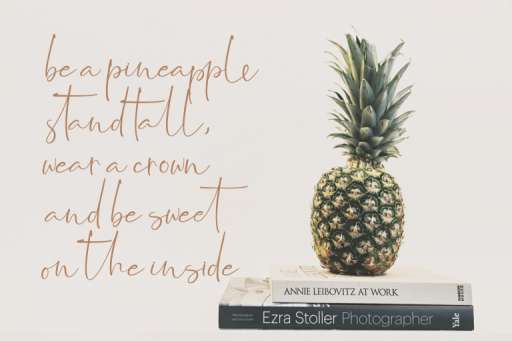 be a pineapple
stand tall,
wear a crown
and be sweet
on the inside
ANNIE LEIBOVITZ AT WORK
Ezra Stoller Photographer
Yale